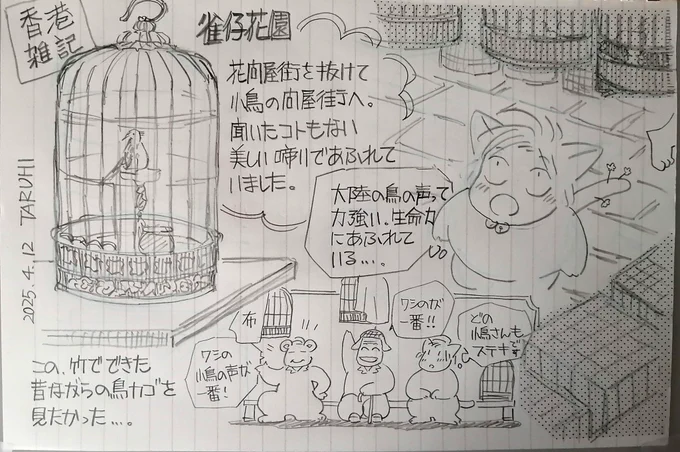 香港
雑記
雀仔花園
花問屋街を抜けて
小鳥の問屋街へ。
聞いたコトもない
美しい啼りであふれて
いました。
大陸の鳥の声って
力強い、生命力
にあふれて
いる…。
2025.4.12 TARUHI
布
ワシの
小鳥の声が
一番!
ワシのが
一番!!
どの
小鳥さんも
ステキです
この、竹でできた
昔ながらの鳥カゴを
見たかった…。